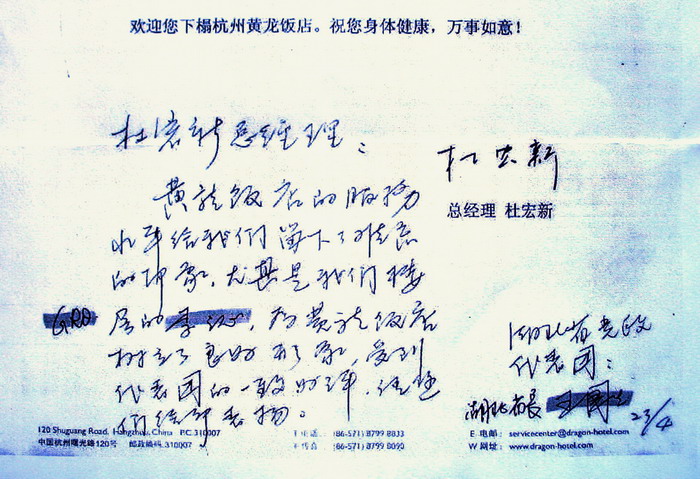 欢迎您下榻杭州黄龙饭店。祝您身体健康，万事如意！
杜宏新总经理：
黄龙饭店的服务
水平给我们留下了难忘
的印象，尤其是我们楼
层的李，为黄龙饭店
树立了良好形象，受到
代表团的一致好评，任您
们给部表扬。
GRO
杜宏新
总经理 杜宏新
湖北省党政
代表团：
湖北省长 王国
23/4
120 Shuguang Road, Hangzhou, China P.C. 310007
中国杭州曙光路120号 邮政编码 310007
T 电话: (86-571) 8799 8833
F 传真: (86-571) 8799 8090
E 电邮: servicecenter@dragon-hotel.com
W 网址: www.dragon-hotel.com